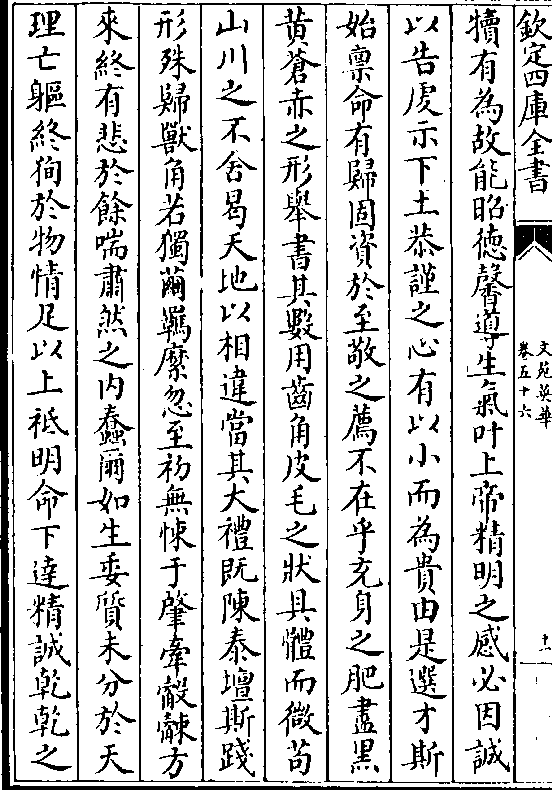 欽定四庫全書
文苑英華
卷五十六
十一
犢有為故能昭德馨導生氣叶上帝精明之感必因誠
以告䖍示下土恭謹之心有以小而為貴由是選才斯
始禀命有歸固資於至敬之薦不在乎充身之肥盡黑
黄蒼赤之形舉書其數用齒角皮毛之狀具體而微苟
山川之不舍曷天地以相違當其大禮既陳泰壇斯踐
形殊歸獸角若獨繭羈縻忽至初無悚于肇牽觳觫方
來終有悲於餘喘肅然之内蠢爾如生委質未分於天
理亡軀終狥於物情足以上祗明命下達精誠乾乾之